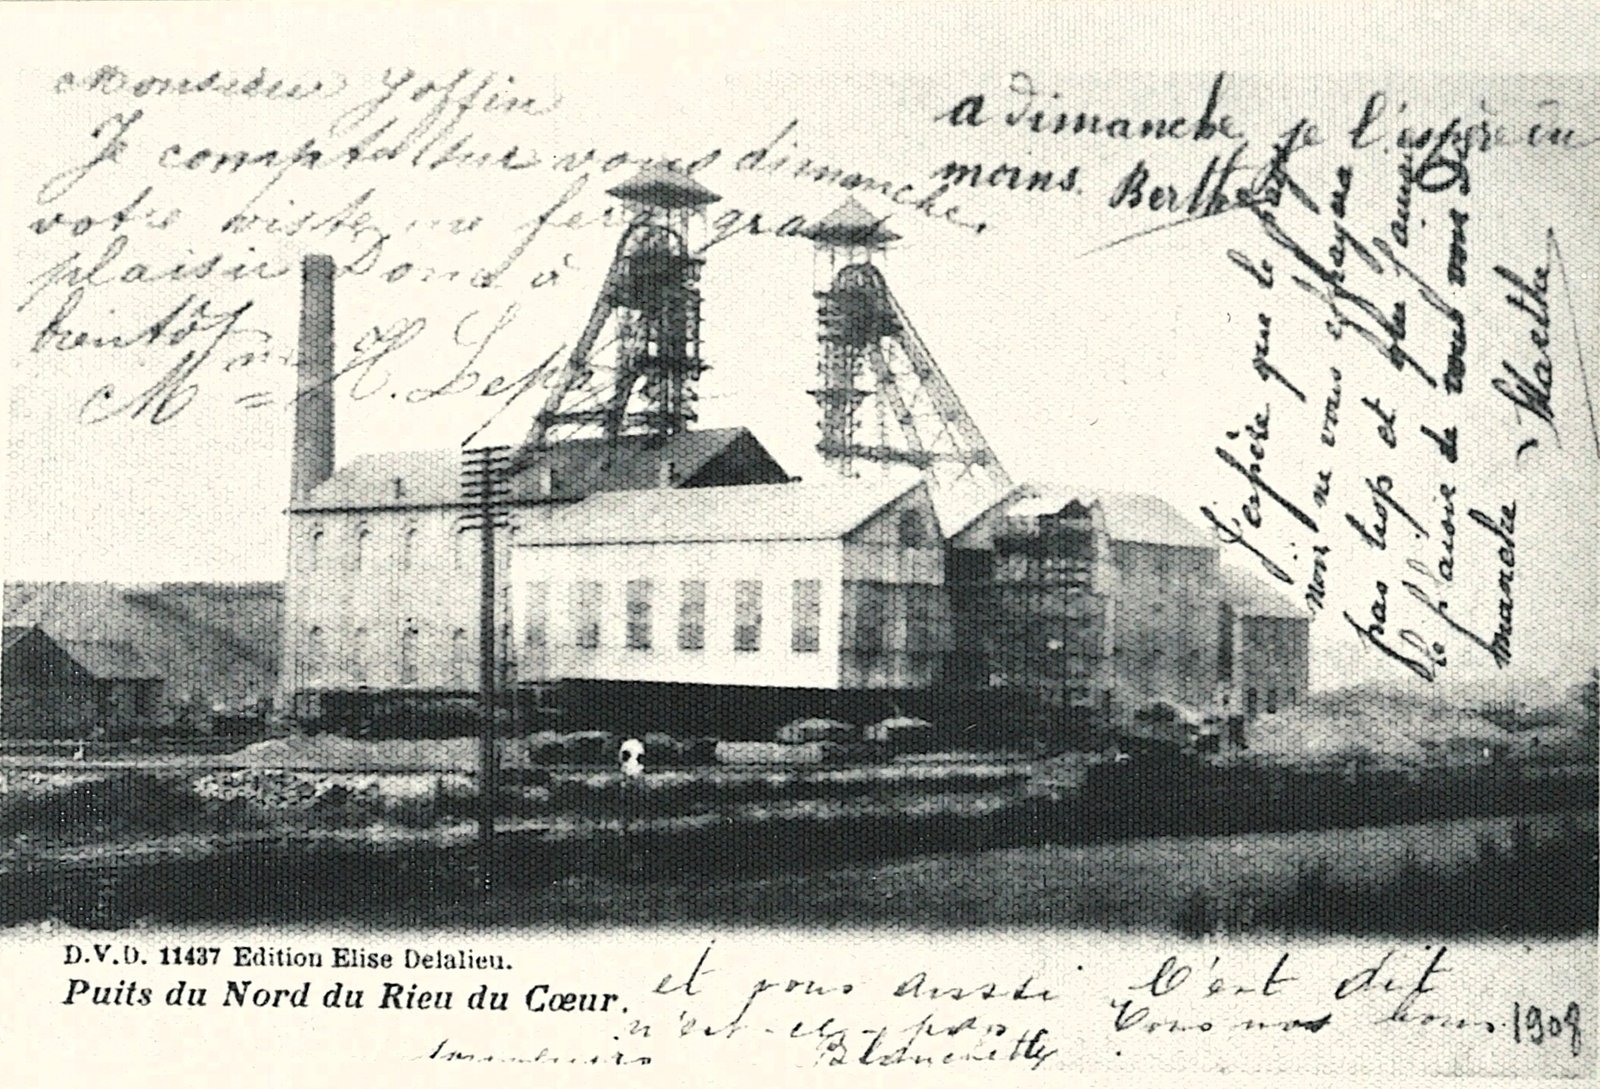 Monsieur Joffin
Je compte sur vous dimanche
votre visite me fera grand
plaisir Donc à
bientôt
Mme H. Lep
a dimanche je l'espère du
moins. Berthe
J'espère que le
non ne vous effrayera
pas trop et que j'aurai
le plaisir de vous voir Di
manche Marthe
D.V.D. 11437 Edition Elise Delalieu.
Puits du Nord du Rieu du Cœur.
et vous aussi C'est dit
n'est-ce-pas Tous nos bons
souvenirs Blanchette
1908